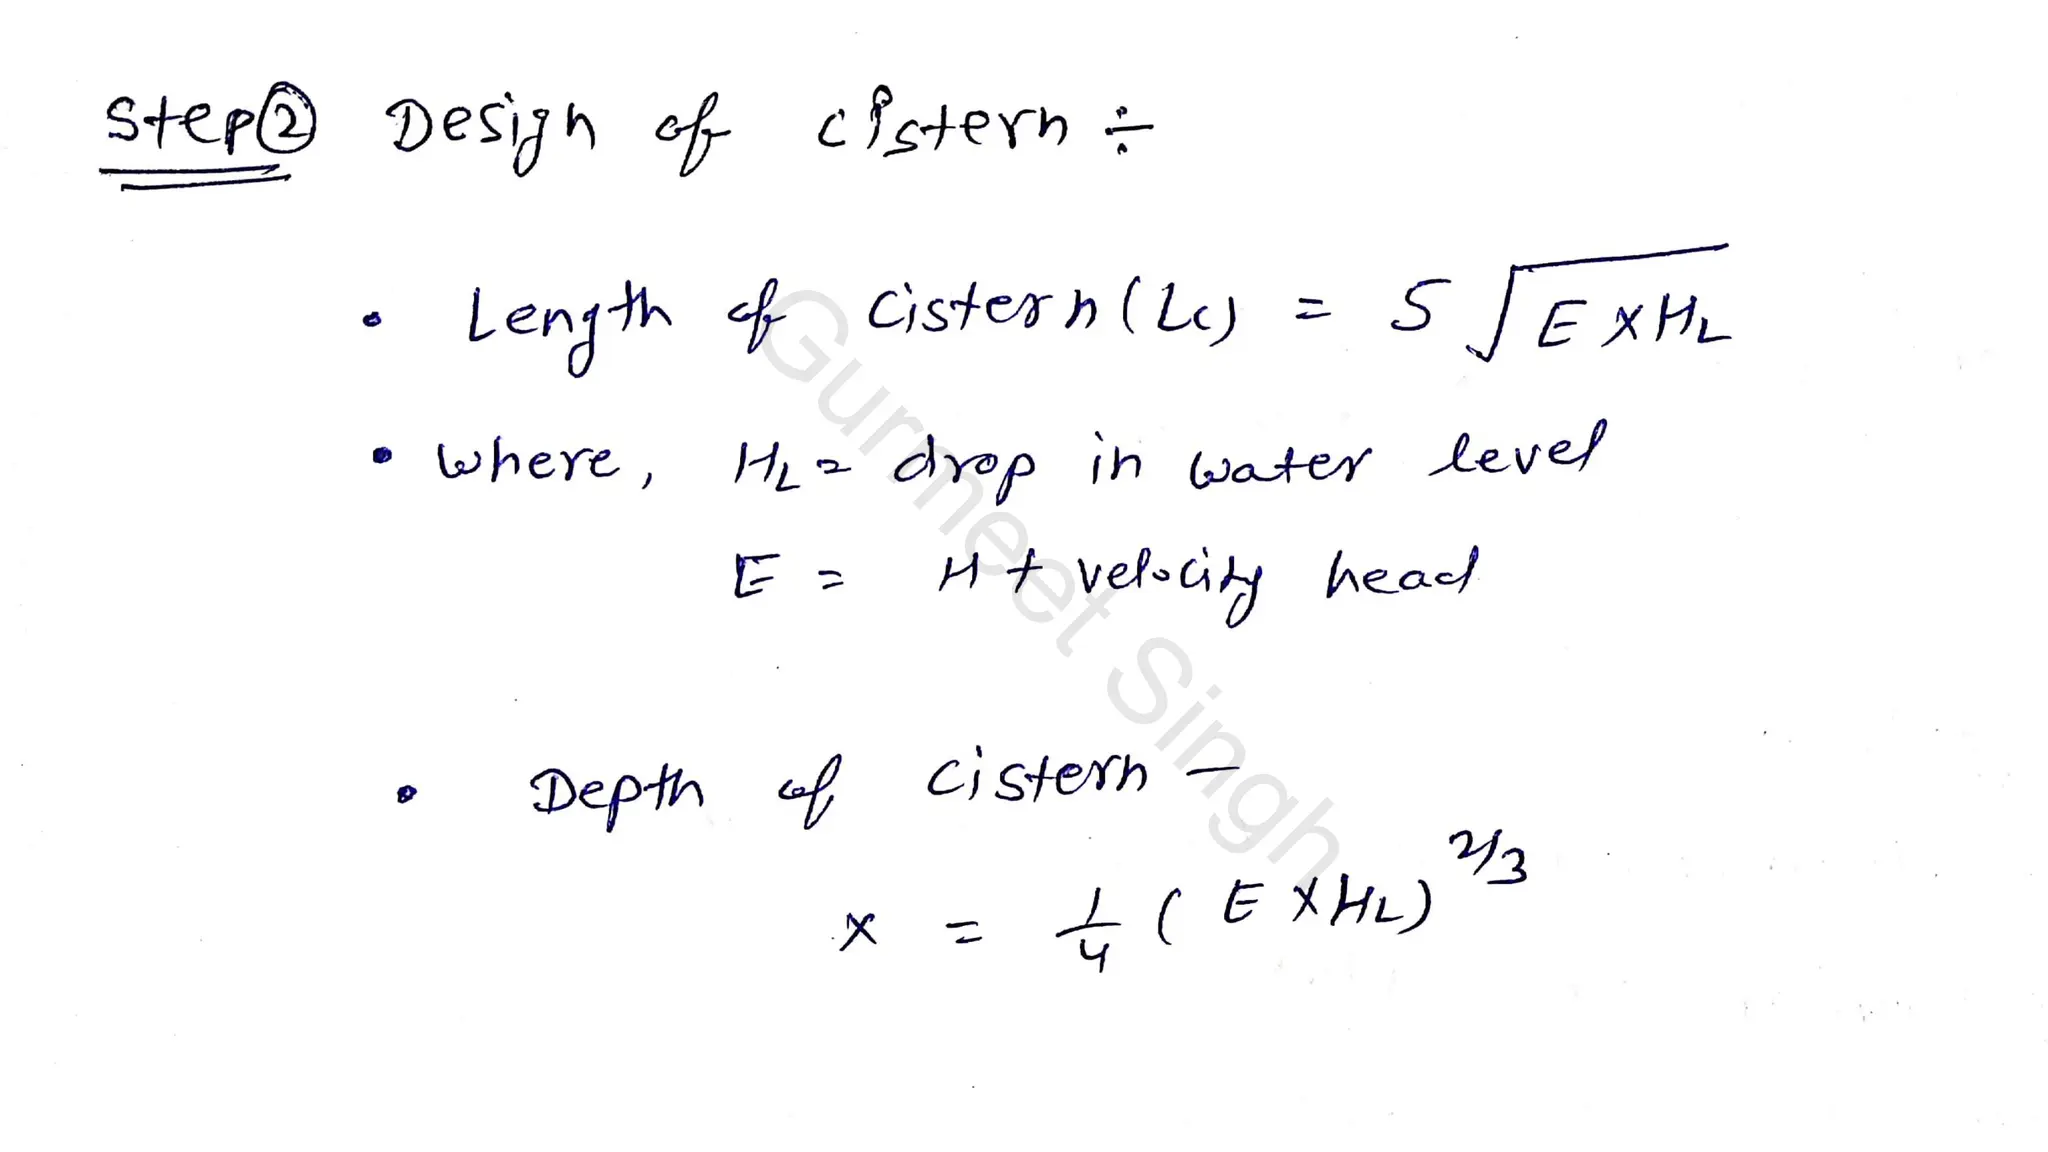 Step② Design of cistern ÷
• Length of cistern (Lc) = 5 √(E × HL)
• where, HL = drop in water level
E = H + velocity head
• Depth of cistern –
x = 1/4 (E × HL)^2/3
Gurmeet Singh